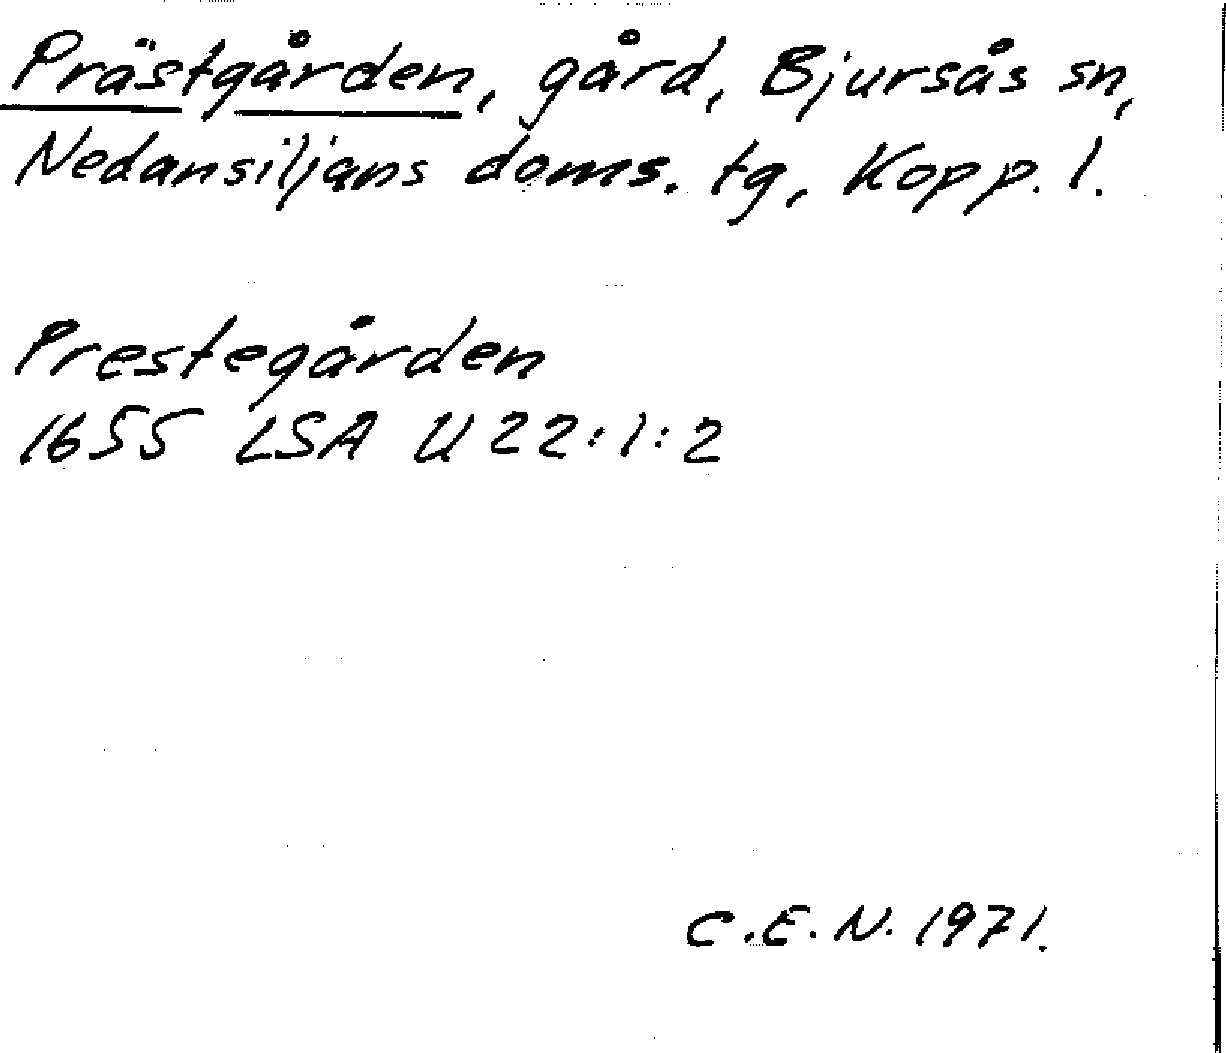 Prästgården, gård, Bjursås sn,
Nedansiljans doms. tg, Kopp. l.
Prestegården
1655 LSA U 22:1:2
C.E.N. 1971.